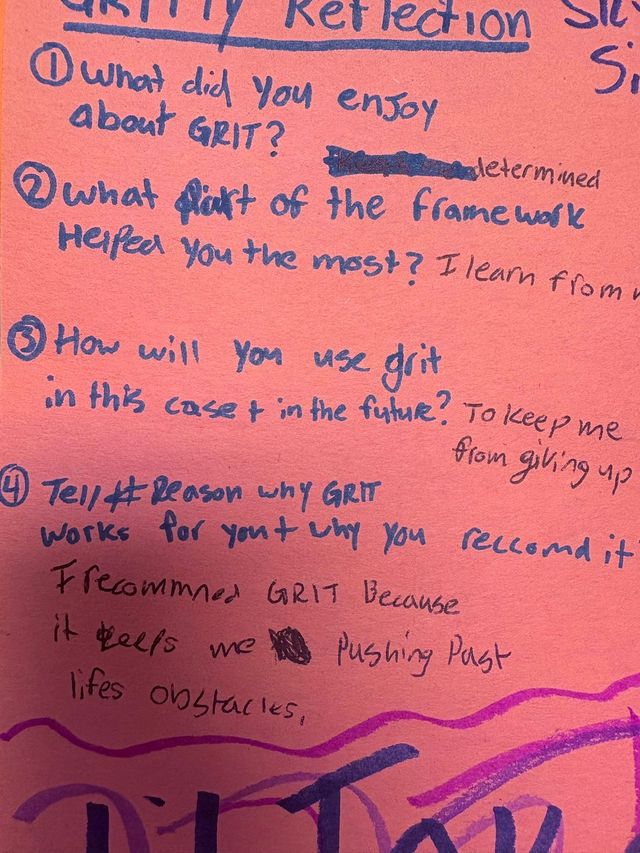 GRITTY Reflection
① What did you enjoy
about GRIT?
determined
② what part of the framework
Helped you the most? I learn from
③ How will you use grit
in this case + in the future? To keep me
from giving up
④ Tell # Reason why GRIT
works for you + why you reccomd it
I recommned GRIT Because
it keeps me Pushing Past
lifes obstacles.